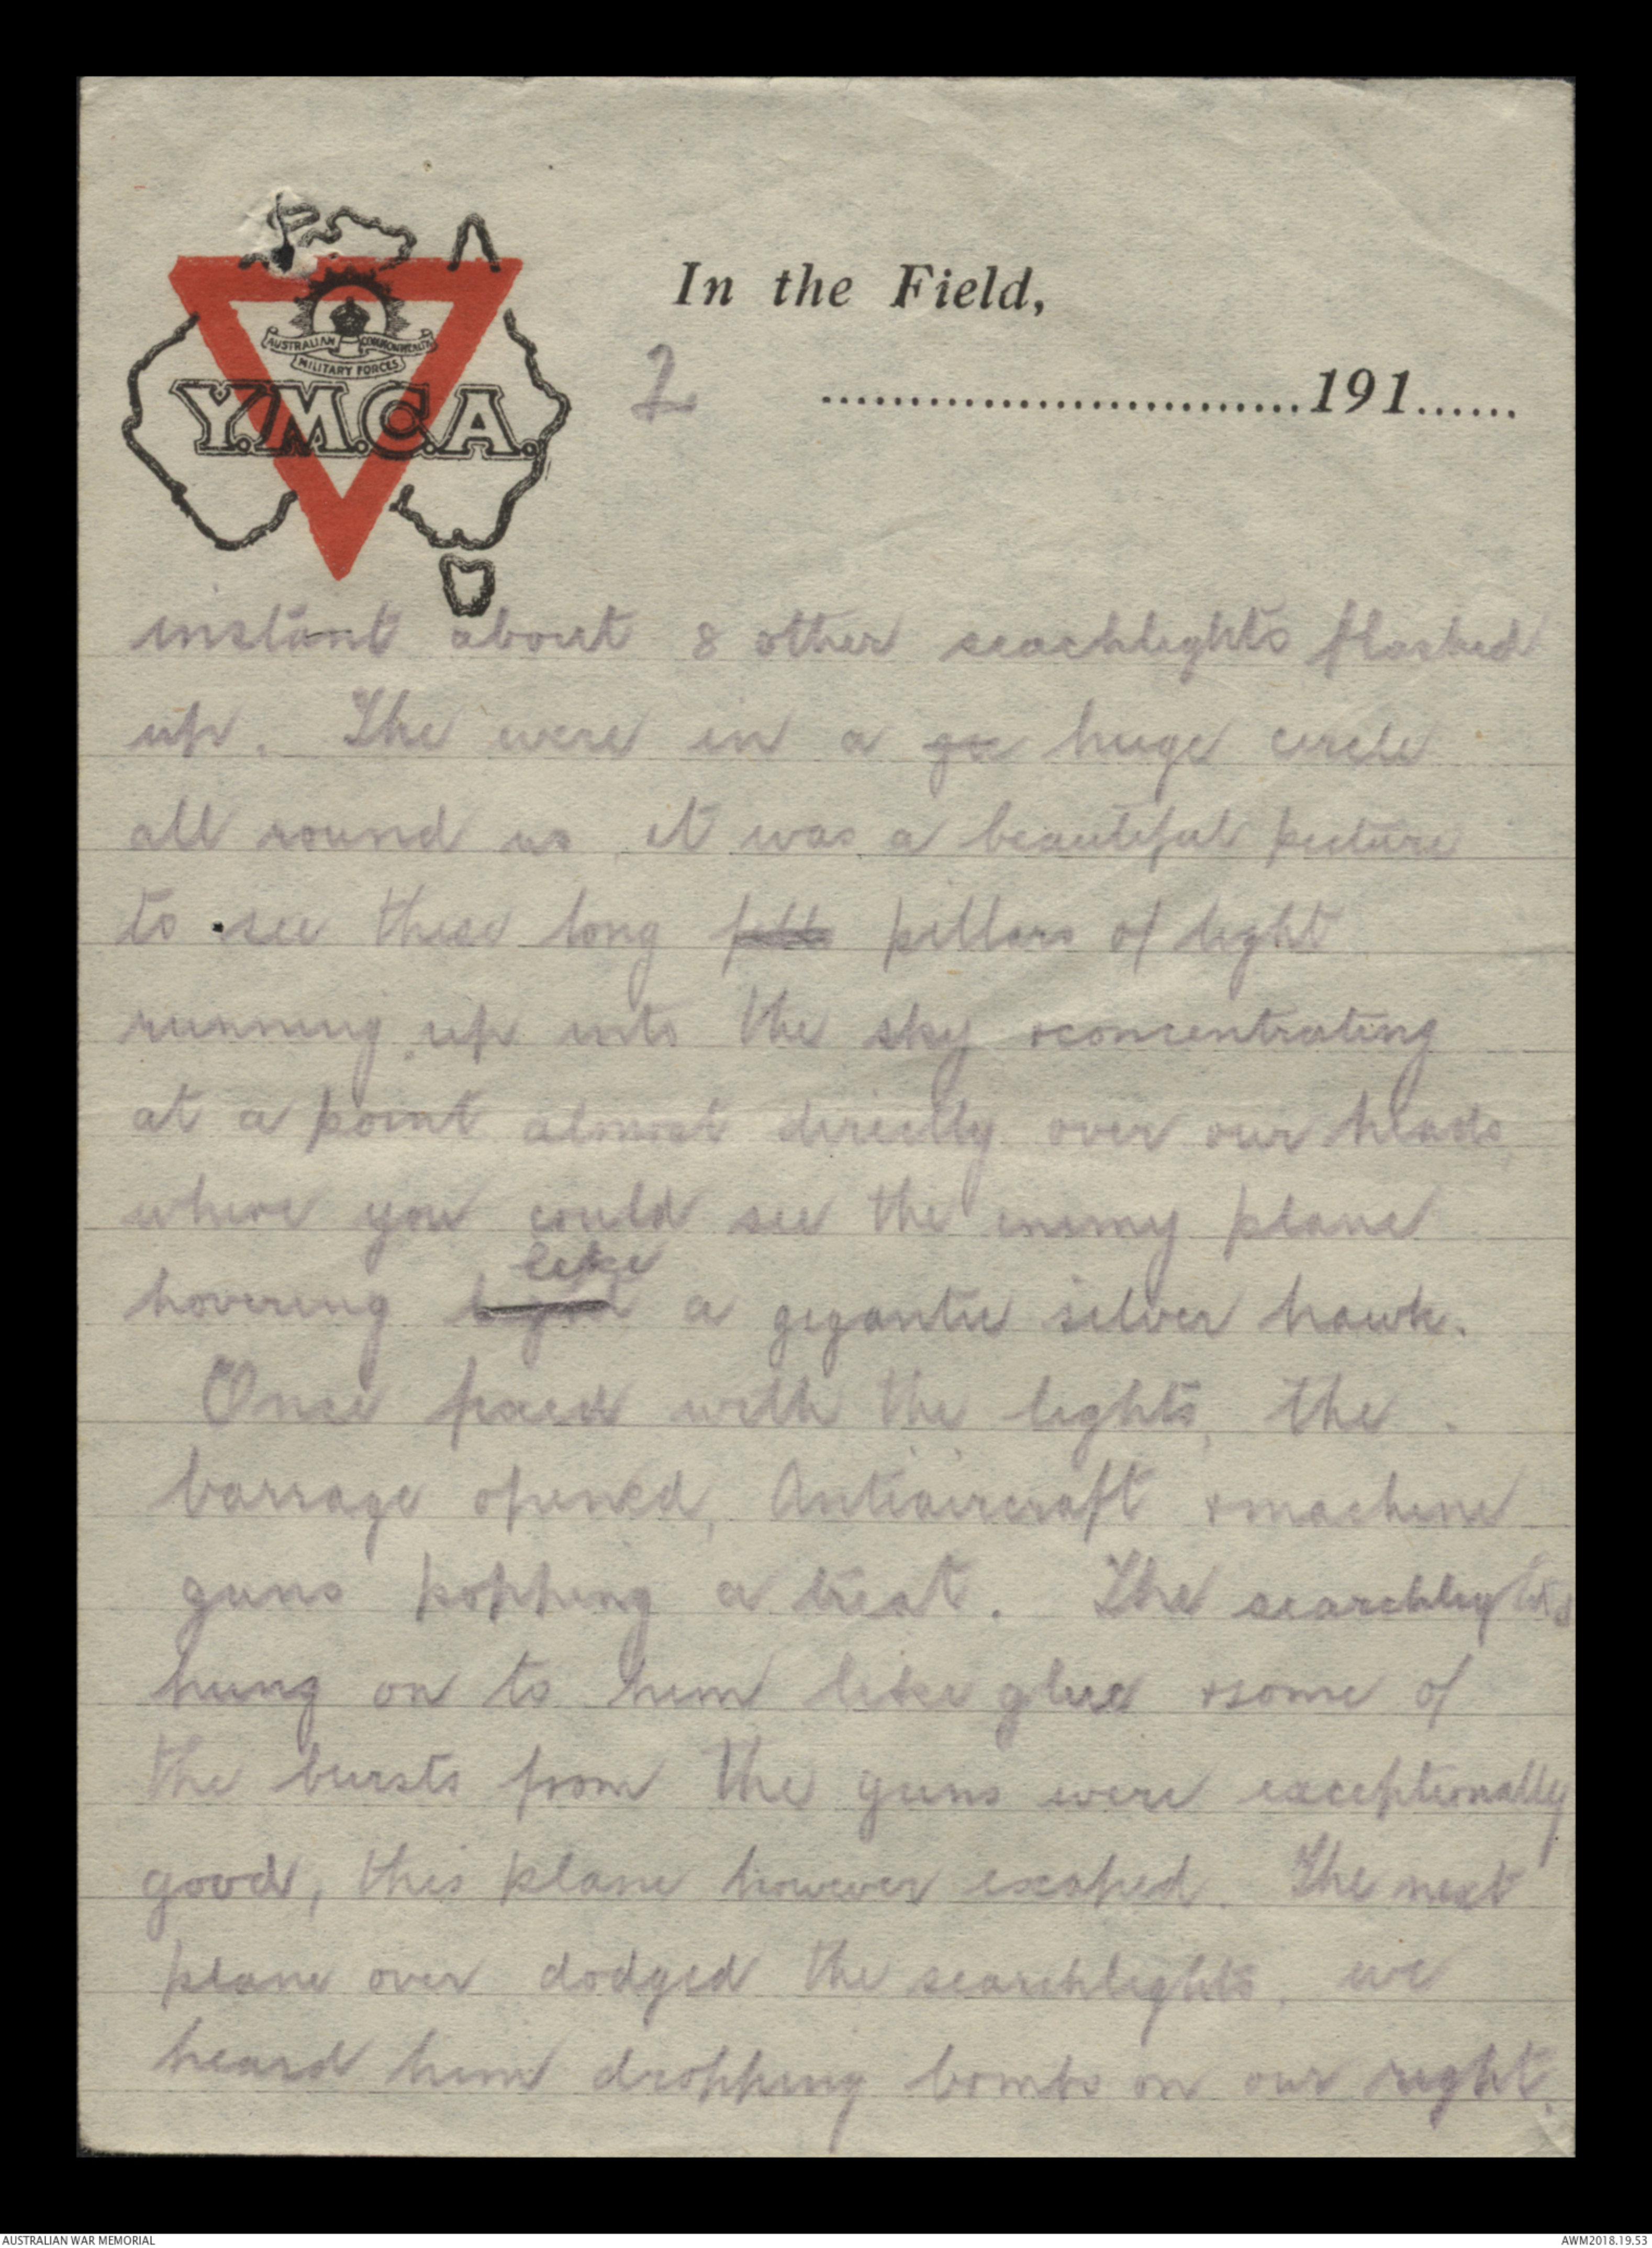 In the Field,
AUSTRALIAN COMMONWEALTH
MILITARY FORCES
Y.M.C.A.
2 ..............................191......
instant about 8 other seachlights flashed
up. The were in a huge circle
all round us, it was a beautiful picture
to see these long pillars of light
running up into the sky & concentrating
at a point almost directly over our heads,
where you could see the enemy plane
like
hovering a gigantic silver hawk.
Once fixed with the lights, the
barrage opened, Antiaircraft & machine
guns popping a treat. The searchlights
hung on to him like glue & some of
the bursts from the guns were exceptionally
good, this plane however escaped. The next
plane over dodged the searchlights, we
heard him dropping bombs on our right.
AUSTRALIAN WAR MEMORIAL
AWM2018.19.53